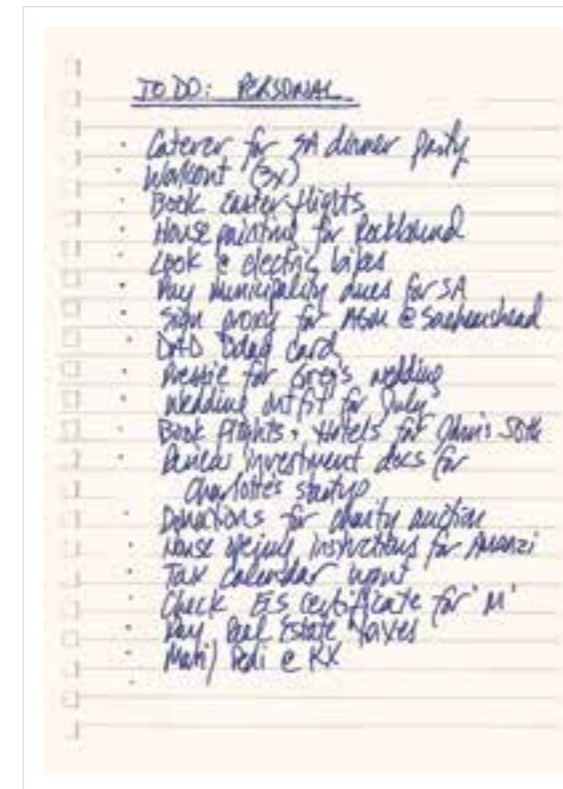 TO DO: PERSONAL
Caterer for SA dinner party
Workout (3x)
Book Easter flights
House painting for Rockbound
Look @ electric bikes
Pay municipality dues for SA
Sign proxy for AGM @ Sachemshead
DAD Bday card
Pressie for Greg's wedding
Wedding outfit for July
Book flights + Hotels for 50th
Review investment docs for
Charlotte's startup
Donations for charity auction
House instructions for Amanzi
Tax Calendar
Check EIS certificate for 'M'
Pay Real Estate Taxes
Mani/Pedi @ KX